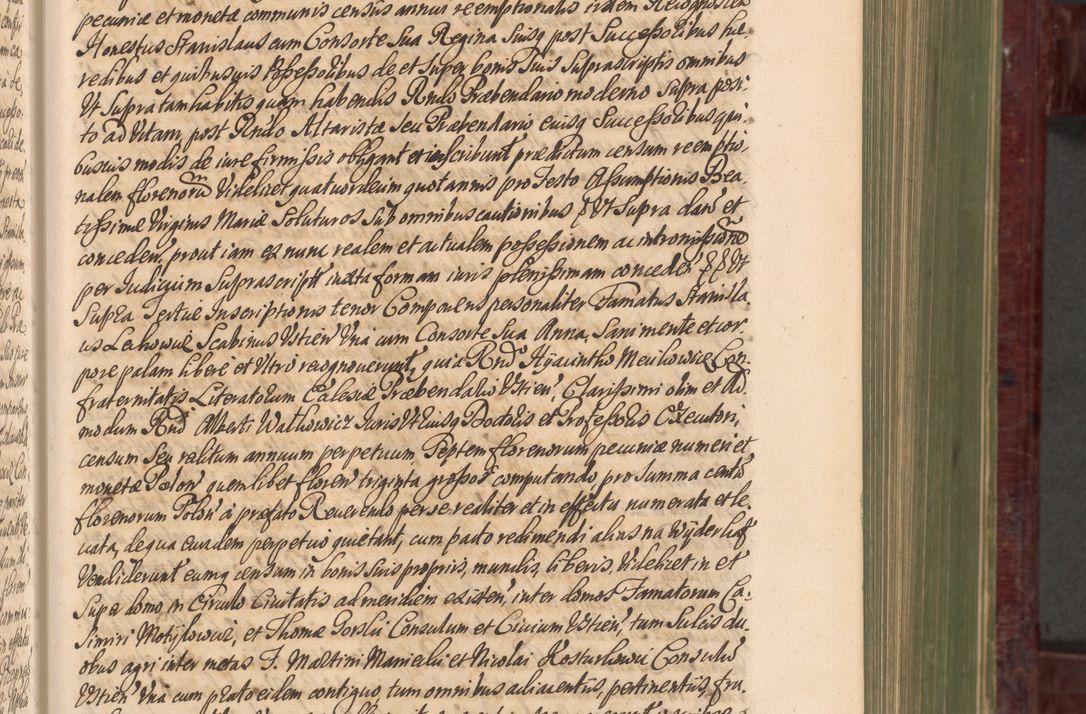 pecuniæ et monetæ communis census annui reemptionalis iidem Recognoscen
Honestus Stanislaus cum Consorte Sua Regina Suisq post Successoribus hæ-
redibus et quibusuis Possessoribus de et Super bonis Suis Suprascriptis omnibus
Ut Supra tam habitis quam habendis Rndo Præbendario moderno Supra posi-
to ad Vitam, post Rndo Altaristæ Seu Præbendario eiusq Successoribus qui-
busuis modis de iure firmissis obligant et inscribunt prædictum censum reemptio
nalem florenorum Videlicet quatuordecim quotannis pro Festo Assumptionis Bea-
tissimæ Virginis Mariæ Soluturos Sub omnibus cautionibus Ut Supra dato et
conceden. prout iam ex nunc realem et actualem possessionem ac intromissione
per Judicium Suprascript iuxta formam iuris plenissimam conceder Ut
Supra Tertiæ Inscriptionis tenor Comparens personaliter Famatus Stanisla-
us Lekowic Scabinus Ustien Una cum Consorte Sua Anna, Sani mente et cor-
pore palam libere et Ultro recognouerunt, quia Rnd Hyacintho Meuchowic Con-
fraternitatis Literatorum Ecclesiæ Præbendario Ustien, Clarissimi olim et Ad-
modum Rnd Alberti Walkowicz Juris Utriusq Doctoris et Professoris Executori,
censum Seu reditum annuum perpetuum Septem florenorum pecuniæ numeri et
monetæ Polon quemlibet floren triginta grossos computando, pro Summa centu
florenorum Polon a præfato Reuerendo per se realiter et in effectu numerata et le-
uata, de qua eundem perpetuo quietant, cum pacto redimendi alias na Wyderkaf
Vendiderunt eumq censum in bonis Suis propriis, mundis, liberis, Videlicet in et
Supe domo, in Circulo Ciuitatis ad meridiem existen, inter domos Famatorum Ca-
simiri Motylowic, et Thomæ Gorski Consulum et Ciuium Ustien, tum Sulcis du-
obus agri inter metas F. Martini Maniecki et Nicolai Kosturkowic Consulu
Ustien Una cum prato eidem contiguo, tum omnibus adiacentiis, pertinentiis, fru-